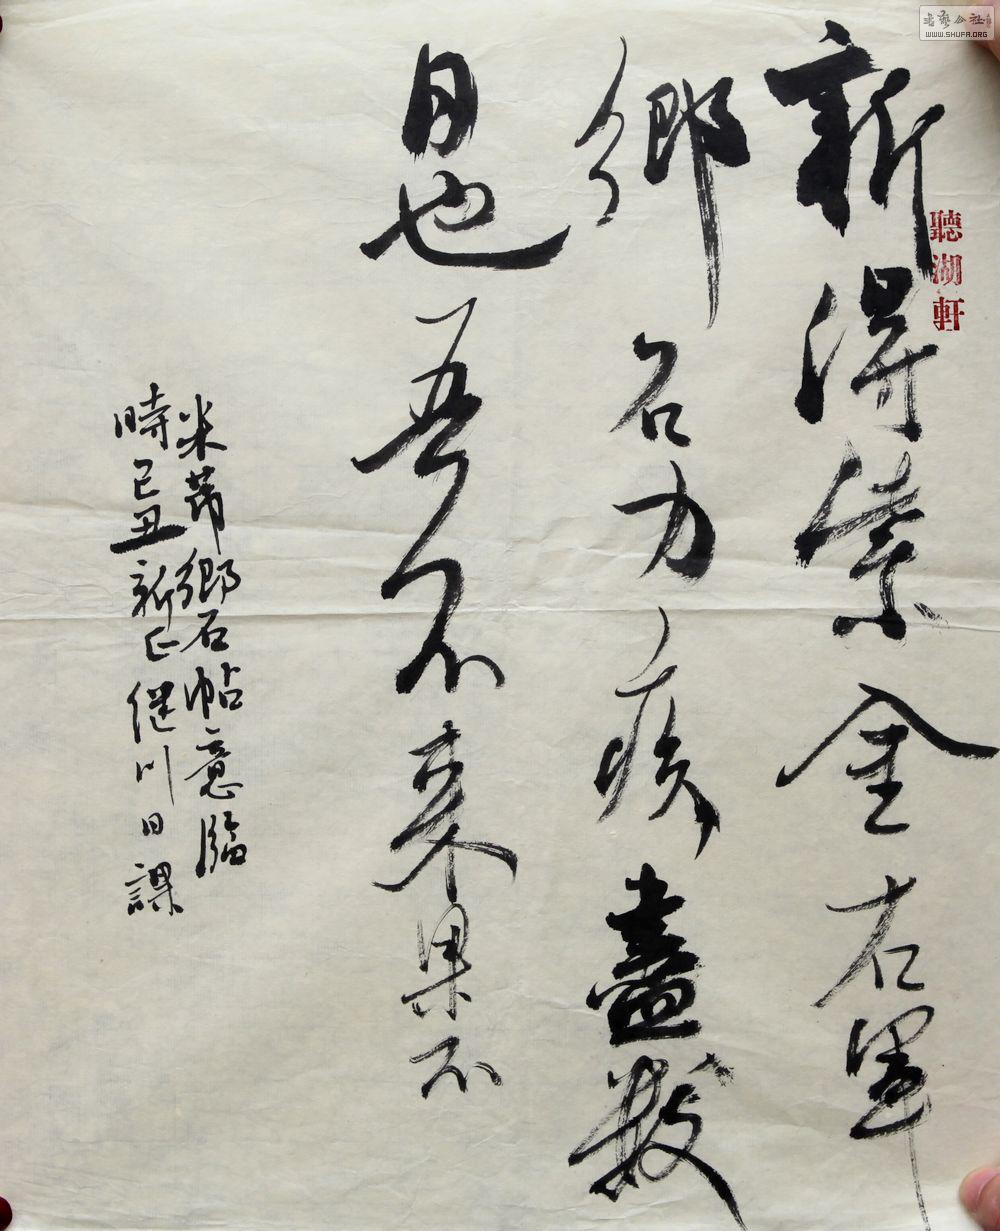 新得紫金右軍
鄉石力疾盡數
日也吾不來果不
米芾鄉石帖意臨
時己丑新正継川日課
聽湖軒
書藝公社
WWW.SHUFA.ORG